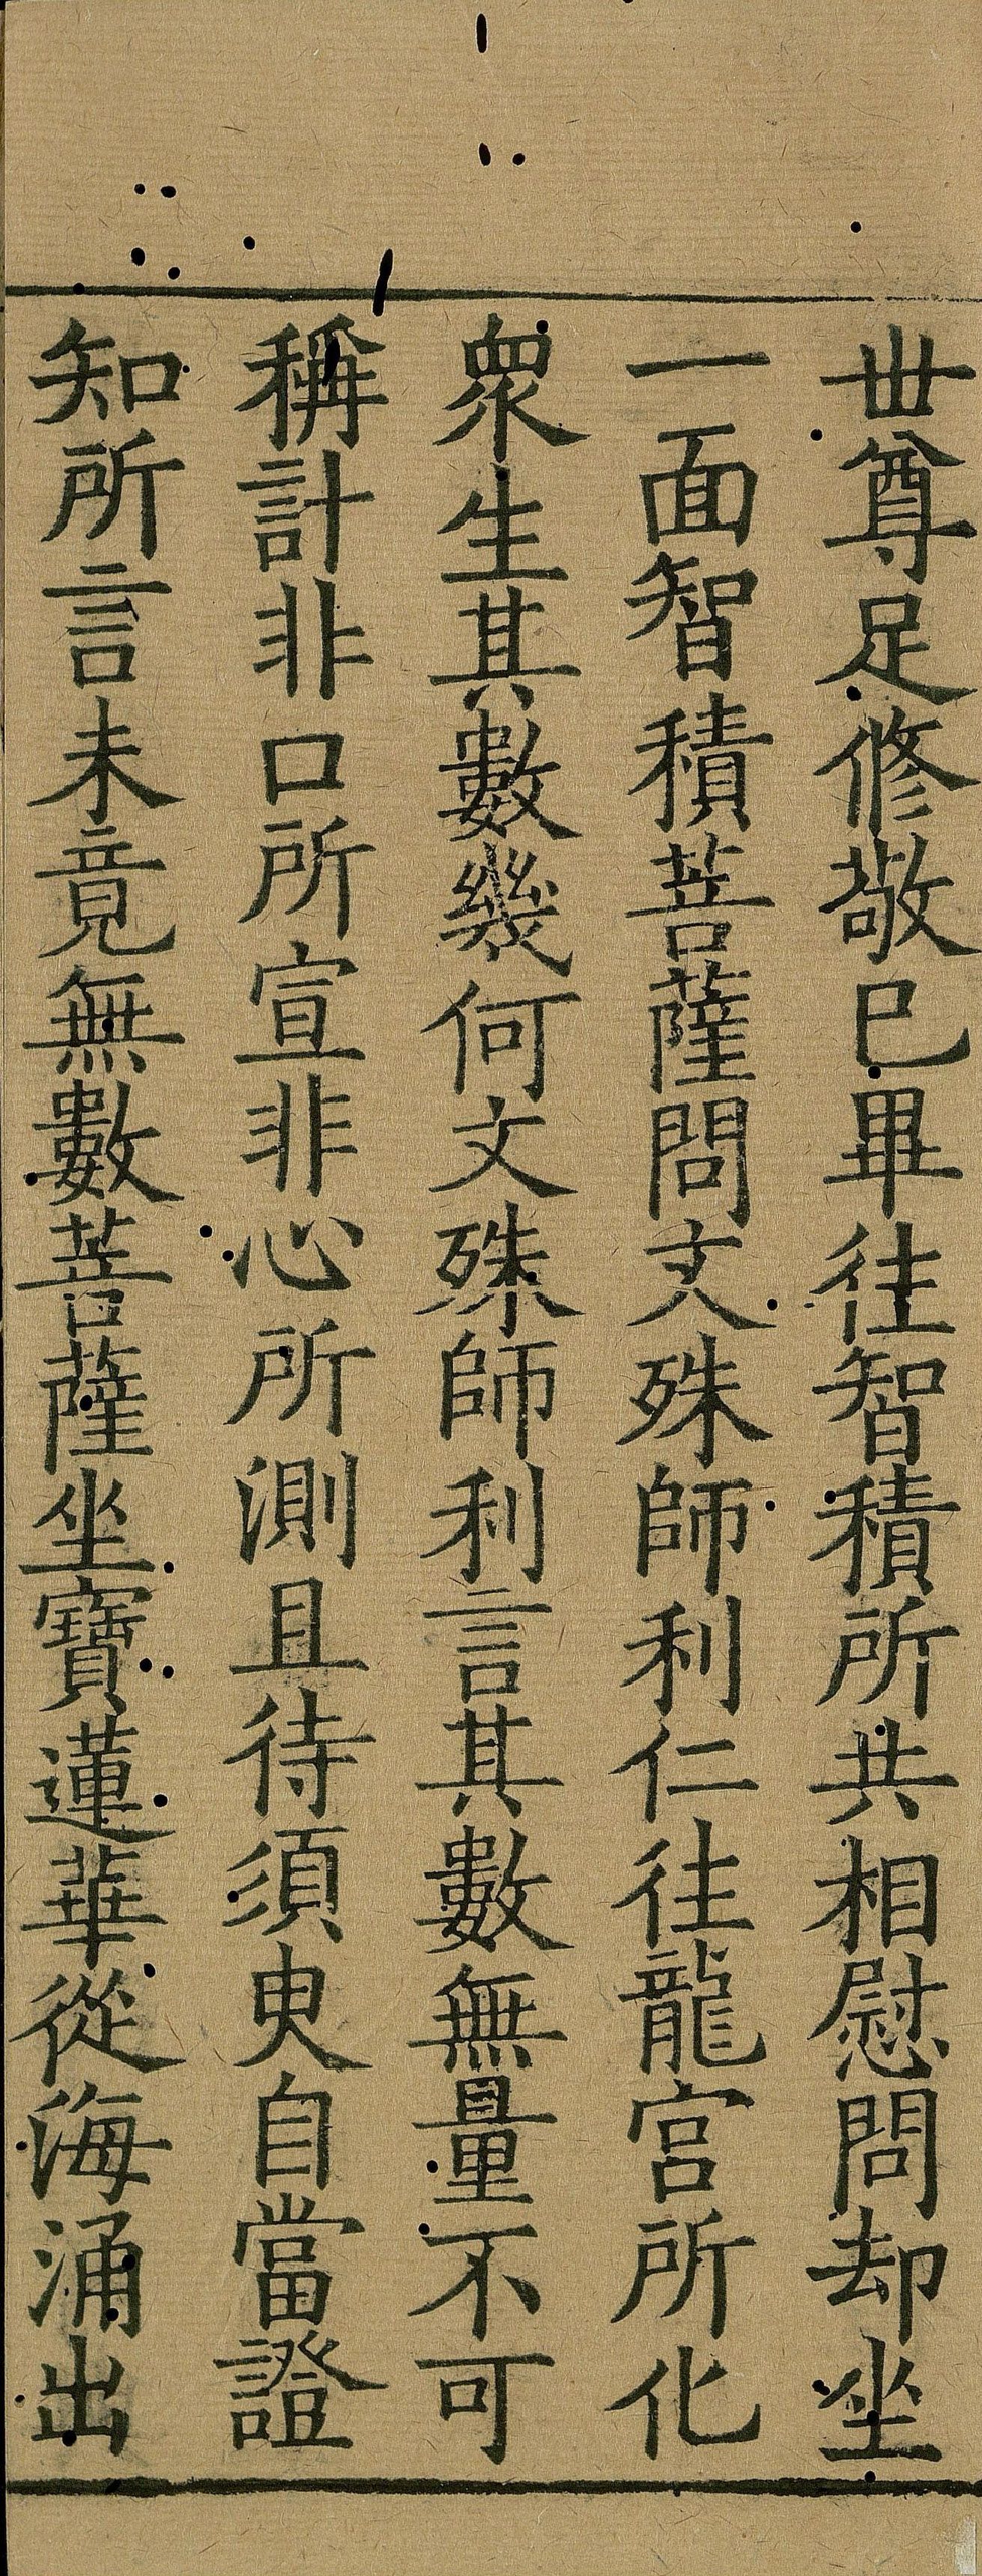 世尊足修敬已畢往智積所共相慰問却坐
一面智積菩薩問文殊師利仁往龍宮所化
衆生其數幾何文殊師利言其數無量不可
稱計非口所宣非心所測且待須臾自當證
知所言未竟無數菩薩坐寶蓮華從海涌出